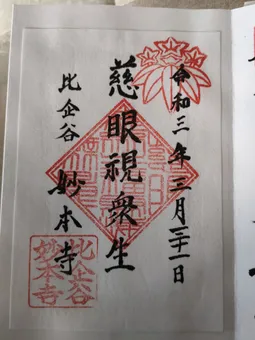 令和三年三月二十一日
慈眼視衆生
比企谷 妙本寺
比企谷
妙本寺